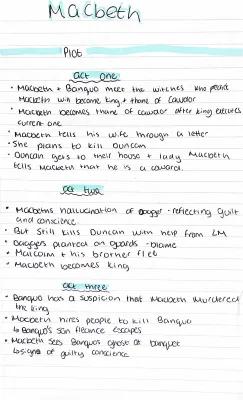 Macbeth
Plot
act one
• Macbeth + Banquo meet the witches who predict
Macbeth will become king + thane of cawdor.
• Macbeth becomes thane of cawdor after king executes
current one
• Macbeth tells his wife through a letter
• She plans to kill Duncan
• Duncan goes to their house + lady Macbeth
tells Macbeth that he is a coward.
act two
• Macbeths hallucination of dagger - reflecting guilt
and conscience.
• But still kills Duncan with help from LM
• daggers planted on guards - blame
• Malcolm + his brother flee
• Macbeth becomes king
act three
• Banquo has a suspicion that Macbeth murdered
the king
• Macbeth hires people to kill Banquo
↳ Banquo's son fleance escapes
• Macbeth sees Banquos ghost at banquet
↳ signs of guilty conscience